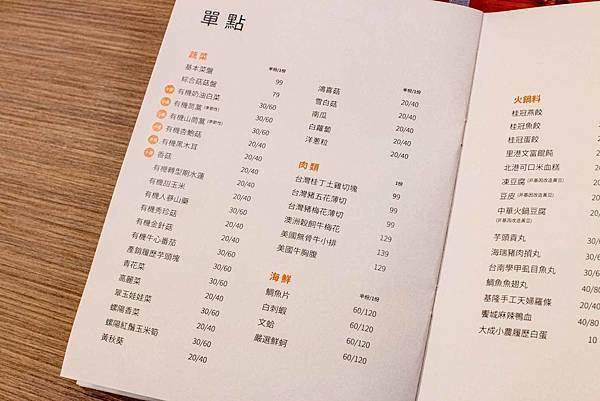 單點
蔬菜
半份/1份
基本菜盤
綜合菇菇盤
有機奶油白菜
有機茼蒿 (季節性)
有機山茼蒿 (季節性)
有機杏鮑菇
有機黑木耳
香菇
有機轉型期水蓮
有機甜玉米
有機人蔘山藥
有機秀珍菇
有機金針菇
有機牛心番茄
產銷履歷芋頭塊
青花菜
高麗菜
翠玉娃娃菜
螺陽香菜
螺陽紅鬚玉米筍
黃秋葵
99
79
30/60
20/40
30/60
20/40
20/40
20/40
20/40
20/40
30/60
20/40
20/40
30/60
20/40
20/40
20/40
20/40
30/60
20/40
半份/1份
鴻喜菇 20/40
雪白菇 20/40
南瓜 20/40
白蘿蔔 20/40
洋蔥粒 20/40
肉類 1份
台灣桂丁土雞切塊 99
台灣豬五花薄切 99
台灣豬梅花薄切 99
澳洲穀飼牛梅花 129
美國無骨牛小排 139
美國牛胸腹 129
海鮮 半份/1份
鯛魚片 60/120
白刺蝦 60/120
文蛤 60/120
嚴選鮮蚵 60/120
火鍋料
桂冠燕餃
桂冠魚餃
桂冠蛋餃
里港文富餛飩
北港可口米血糕
凍豆腐 (非基因改造黃豆)
豆皮 (非基因改造黃豆) 30
中華火鍋豆腐 20
(非基因改造黃豆)
芋頭貢丸 30/
海瑞豬肉摃丸 30/
台南學甲虱目魚丸 30/
鯛魚魚翅丸 30/
基隆手工天婦羅條 20/40
饗城麻辣鴨血 40/80
大成小農履歷白蛋 10